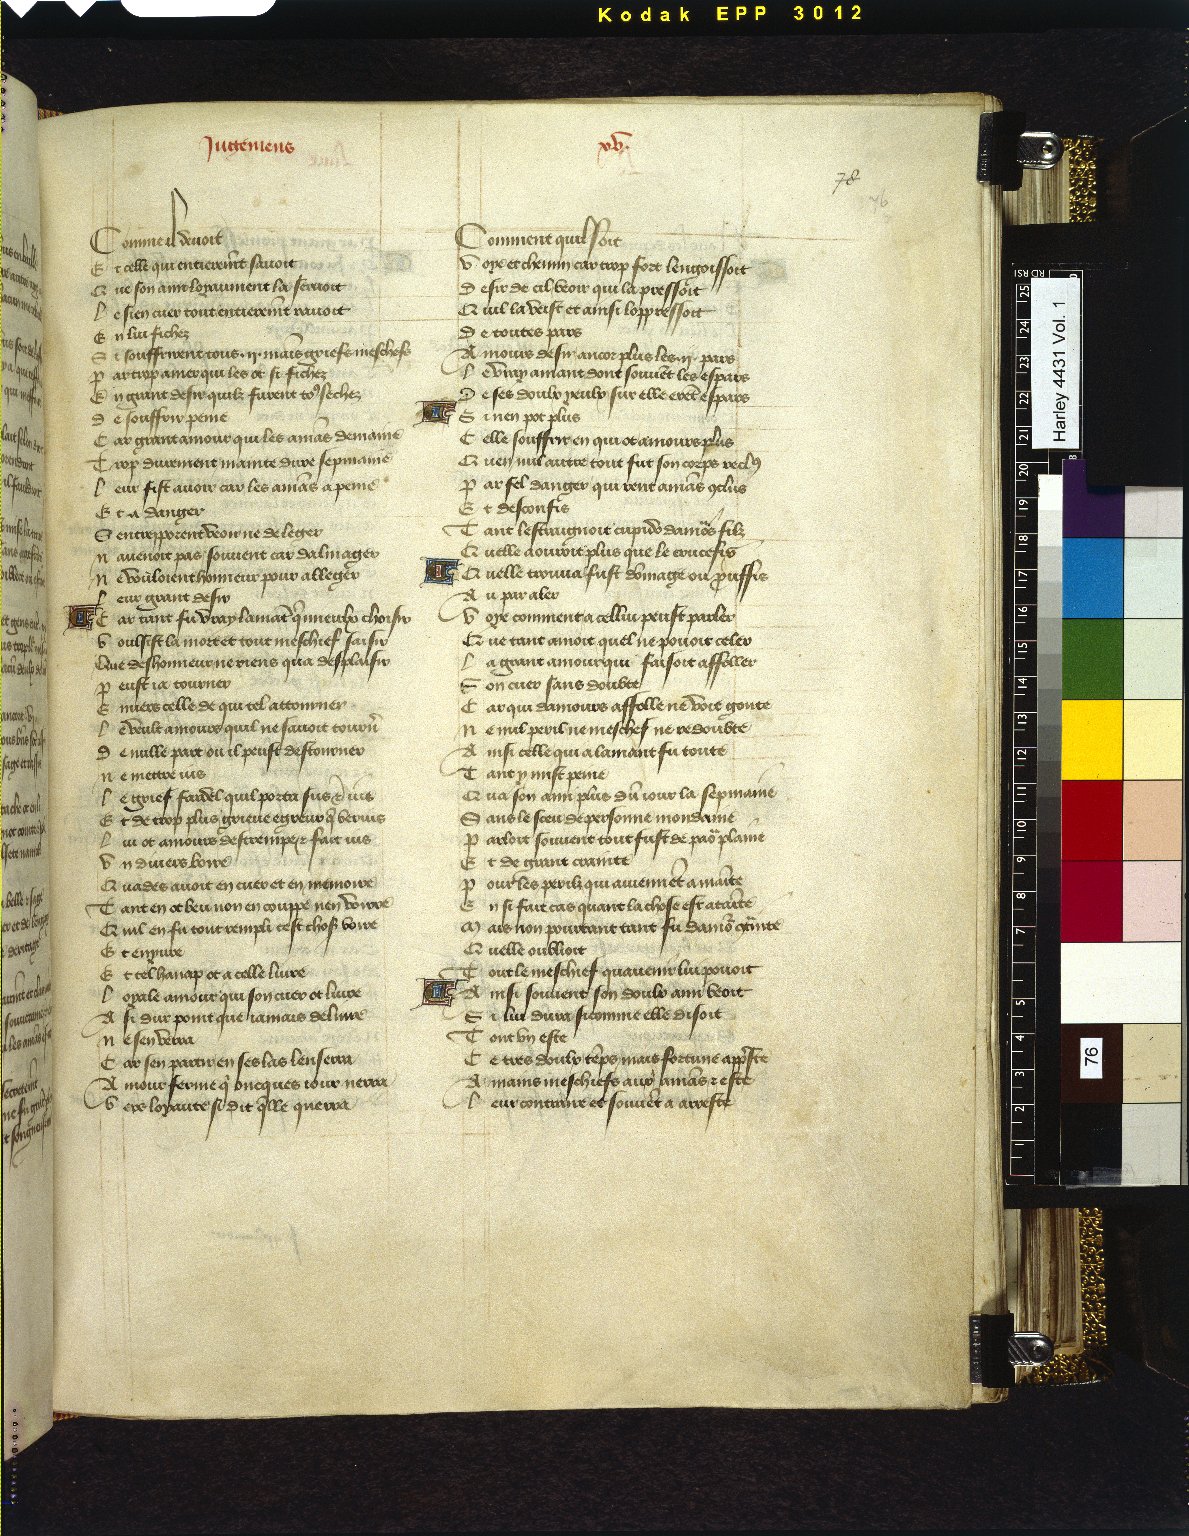 Kodak EPP 3012
Jugemens
xv.
78
76
Comme il devoit
Et celle qui entieremēt savoit
Que son ami loyaument la servoit
Le sien cuer tout entieremēt ravoit
En lui fichez
Si souffrirent tous .ii. mais griefs meschefs
Par trop amer qui les ot si fichez
En grant desir quilz furent toꝰ sechez
De souffrir peine
Car grant amour qui les amās demaine
Trop durement mainte dure sepmaine
Leur fist avoir car les amās a peine
Et a danger
Sentreporent veoir ne de leger
Navenoit pas souvent car dalmager
Ne vouloient honneur pour alleger
Leur grant desir
Car tant fu vray lamāt q̄ mieulx choisir
Voulsist la mort et tout meschief saisir
Que deshonneur ne riens qua desplaisir
Peust ja tourner
Envers celle de qui tel attourner
Le veult amours quil ne savoit tourn̄
De nulle part ou il peust destourner
Ne mettre jus
Le grief fardel quil porta sus et jus
Et de trop plus grieve egreur q̄ verjus
Lui ot amours destrempe et fait jus
Un divers boire
Quades avoit en cuer et en memoire
Tant en ot beu non en couppe nen voirre
Quil en fu tout rempli cest chose voire
Et enyvre
Et tel hanap ot a celle livre
Loyale amour qui son cuer ot livre
A si dur point que jamais delivre
Ne sen verra
Car sen partir en ses las lenserra
Amour ferme q̄ oncques jour nerra
Vers loyaute si dit q̄lle querra
Comment quil soit
Voye et chemin car trop fort lengoissoit
Desir de cil veoir qui la pressoit
Quil la veist et ainsi loppressoit
De toutes pars
Amours desir ancor plus les .ii. pars
Le vray amant dont souvēt les espars
De ses doulx yeulx sur elle erēt espars
Si nen pot plus
Celle souffrir en qui ot amours plus
Quen nul autre tout fut son corps reclꝰ
Par fel danger qui rent amās ꝯclus
Et desconfis
Tant lestraignoit cupido damōs filz
Quelle aouroit plus que le crucefis
Quelle trouva fust domage ou prouffis
Au par aler
Voye comment a cellui peust parler
Que tant amoit quel ne pouoit celer
La grant amour qui faisoit affoller
Son cuer sans doubte
Car qui damours affolle ne voit goute
Ne nul peril ne meschef ne redoubte
Ainsi celle qui a lamant fu toute
Tant y mist peine
Qua son ami plus dū jour la sepmaine
Sans le sceu de personne mondaine
Parloit souvent tout fust de paoʳ plaine
Et de grant crainte
Pour les perilz qui avienēt a mainte
En si fait cas quant la chose est atainte
Mais non pourtant tant fu damoʳ ꝯtrainte
Quelle oublioit
Tout le meschief quavenir lui pouoit
Ainsi souvent son doulx ami veoit
Si lui dura si comme elle disoit
Tout un este
Ce tres doulx tēps mais fortune app̄ste
A mains meschiefs aux amās et este
Leur contraire et souvēt a arreste
Harley 4431 Vol. 1
76